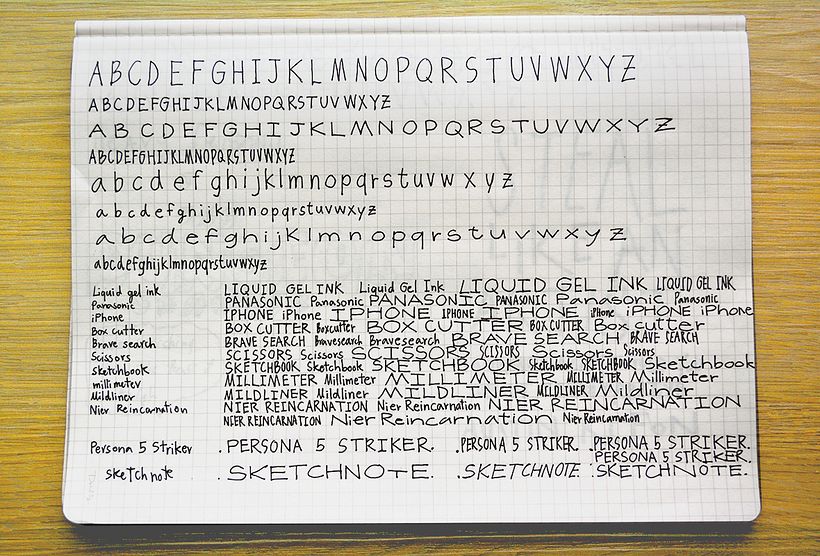 A B C D E F G H I J K L M N O P Q R S T U V W X Y Z
A B C D E F G H I J K L M N O P Q R S T U V W X Y Z
A B C D E F G H I J K L M N O P Q R S T U V W X Y Z
ABCDEFGHIJKLMNOPQRSTUVWXYZ
a b c d e f g h i j k l m n o p q r s t u v w x y z
a b c d e f g h i j k l m n o p q r s t u v w x y z
a b c d e f g h i j k l m n o p q r s t u v w x y z
abcdefghijklmnopqrstuvwxyz
Liquid gel ink LIQUID GEL INK Liquid Gel Ink LIQUID GEL INK LIQUID GEL INK
Panasonic PANASONIC Panasonic PANASONIC PANASONIC Panasonic Panasonic
iPhone IPHONE iPhone IPHONE IPHONE IPHONE iPhone iPHONE iPhone
Box cutter BOX CUTTER Boxcutter BOX CUTTER BOX CUTTER Box cutter
Brave search BRAVE SEARCH Bravesearch Bravesearch BRAVE SEARCH BRAVE SEARCH
Scissors SCISSORS Scissors SCISSORS SCISSORS Scissors Scissors
sketchbook SKETCHBOOK Sketchbook SKETCHBOOK Sketchbook SKETCHBOOK Sketchbook
millimeter MILLIMETER Millimeter MILLIMETER MILLIMETER Millimeter
Mildliner MILDLINER Mildliner MILDLINER MILDLINER Mildliner
Nier Reincarnation NIER REINCARNATION Nier Reincarnation NIER REINCARNATION
NIER REINCARNATION Nier Reincarnation Nier Reincarnation
Persona 5 Striker . PERSONA 5 STRIKER. . PERSONA 5 STRIKER. . PERSONA 5 STRIKER.
PERSONA 5 STRIKER.
sketchnote . SKETCHNOTE. . SKETCHNOTE . SKETCHNOTE.